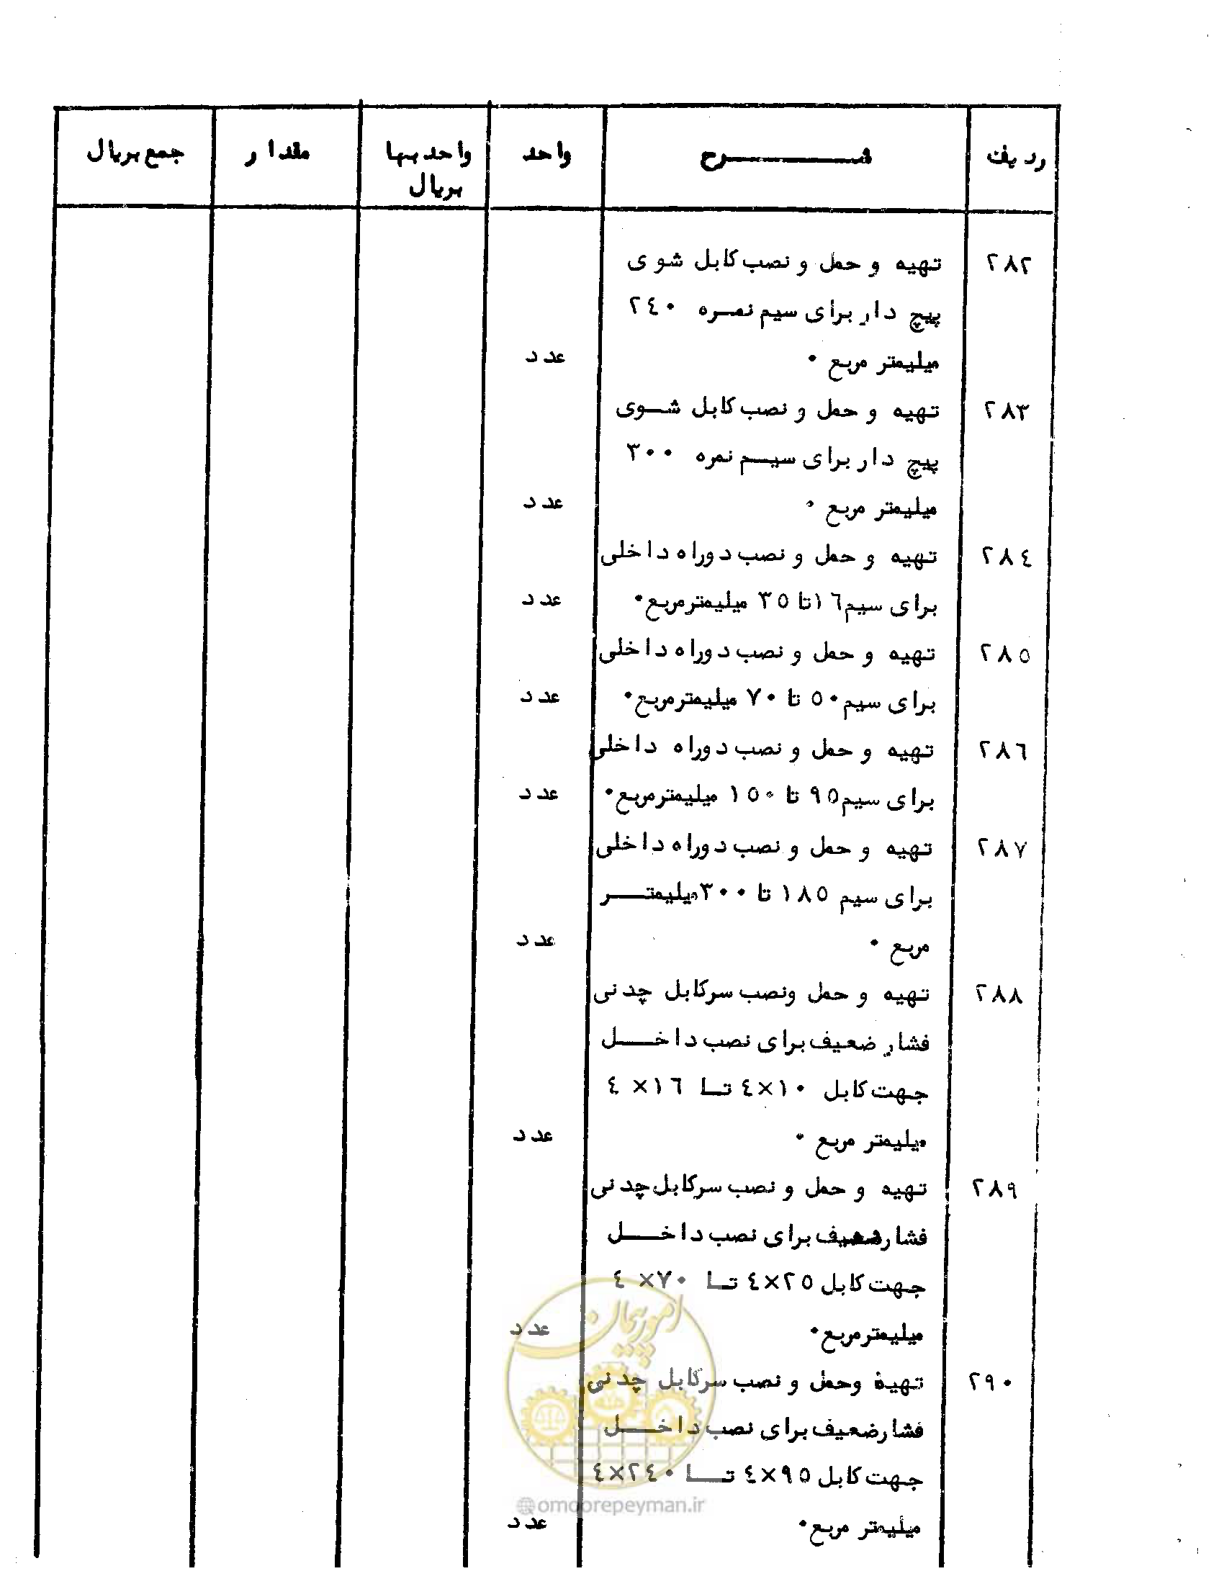 ردیف شـــــرح واحد واحد بها مقدار جمع بریال
بریال
۲۸۲ تهیه و حمل و نصب کابل شوی
پیچ دار برای سیم نمره ۲٤۰
میلیمتر مربع ۰ عدد
۲۸۳ تهیه و حمل و نصب کابل شــوی
پیچ دار برای سیــم نمره ۳۰۰
میلیمتر مربع ۰ عدد
۲۸٤ تهیه و حمل و نصب دوراه داخلی
برای سیم ۱٦ تا ۳٥ میلیمتر مربع ۰ عدد
۲۸٥ تهیه و حمل و نصب دوراه داخلی
برای سیم ٥۰ تا ۷۰ میلیمتر مربع ۰ عدد
۲۸٦ تهیه و حمل و نصب دوراه داخلی
برای سیم ۹٥ تا ۱٥۰ میلیمتر مربع ۰ عدد
۲۸۷ تهیه و حمل و نصب دوراه داخلی
برای سیم ۱۸٥ تا ۳۰۰ میلیمتــر
مربع ۰ عدد
۲۸۸ تهیه و حمل ونصب سرکابل چدنی
فشار ضعیف برای نصب داخــل
جهت کابل ۱۰×٤ تــا ۱٦×٤
میلیمتر مربع ۰ عدد
۲۸۹ تهیه و حمل و نصب سرکابل چدنی
فشار ضعیف برای نصب داخــل
جهت کابل ۲٥×٤ تــا ۷۰×٤
میلیمتر مربع ۰ عدد
۲۹۰ تهیه وحمل و نصب سرکابل چدنی
فشار ضعیف برای نصب داخــل
جهت کابل ۹٥×٤ تــا ۲٤۰×٤
میلیمتر مربع ۰ عدد
امور پیمان
@omoorepeyman.ir